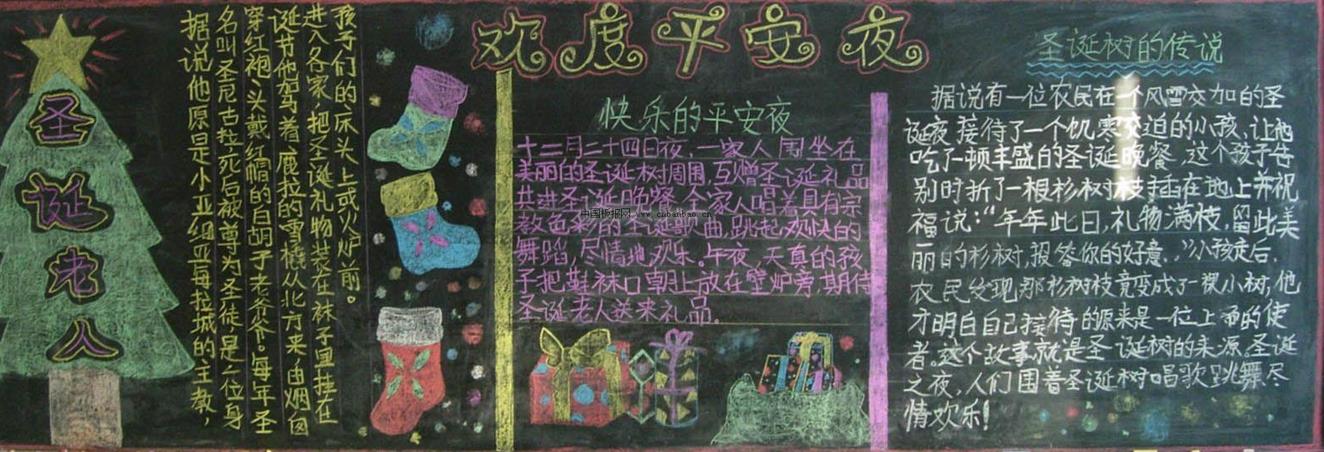 圣诞老人
据说他原是小亚细亚每拉城的主教,
名叫圣尼古拉,死后被尊为圣徒,是一位身
穿红袍、头戴红帽的白胡子老爷爷。每年圣
诞节他驾着鹿拉的雪橇从北方来,由烟囱
进入各家,把圣诞礼物装在袜子里挂在
孩子们的床头上或火炉前。
欢度平安夜
快乐的平安夜
十二月二十四日夜,一家人围坐在
美丽的圣诞树周围,互赠圣诞礼品
共进圣诞晚餐,全家人唱着具有宗
教色彩的圣诞歌曲,跳起欢快的
舞蹈,尽情地欢乐。午夜,天真的孩
子把鞋袜口朝上放在壁炉旁,期待
圣诞老人送来礼品。
中国板报网 www.cnbanbao.cn
圣诞树的传说
据说有一位农民在一个风雪交加的圣
诞夜接待了一个饥寒交迫的小孩,让他
吃了一顿丰盛的圣诞晚餐,这个孩子告
别时折了一根杉树枝插在地上并祝
福说:“年年此日,礼物满枝,留此美
丽的杉树,报答你的好意。”小孩走后,
农民发现那杉树枝竟变成了一棵小树,他
才明白自己接待的原来是一位上帝的使
者。这个故事就是圣诞树的来源。圣诞
之夜,人们围着圣诞树唱歌跳舞,尽
情欢乐!